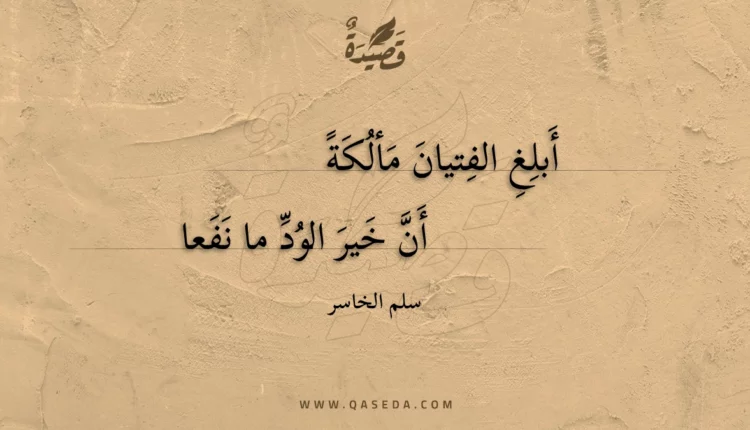 قَصِيدَةٌ
أَبلِغِ الفِتيانَ مَألُكَةً
أَنَّ خَيرَ الوُدِّ ما نَفَعا
سلم الخاسر
WWW.QASEDA.COM